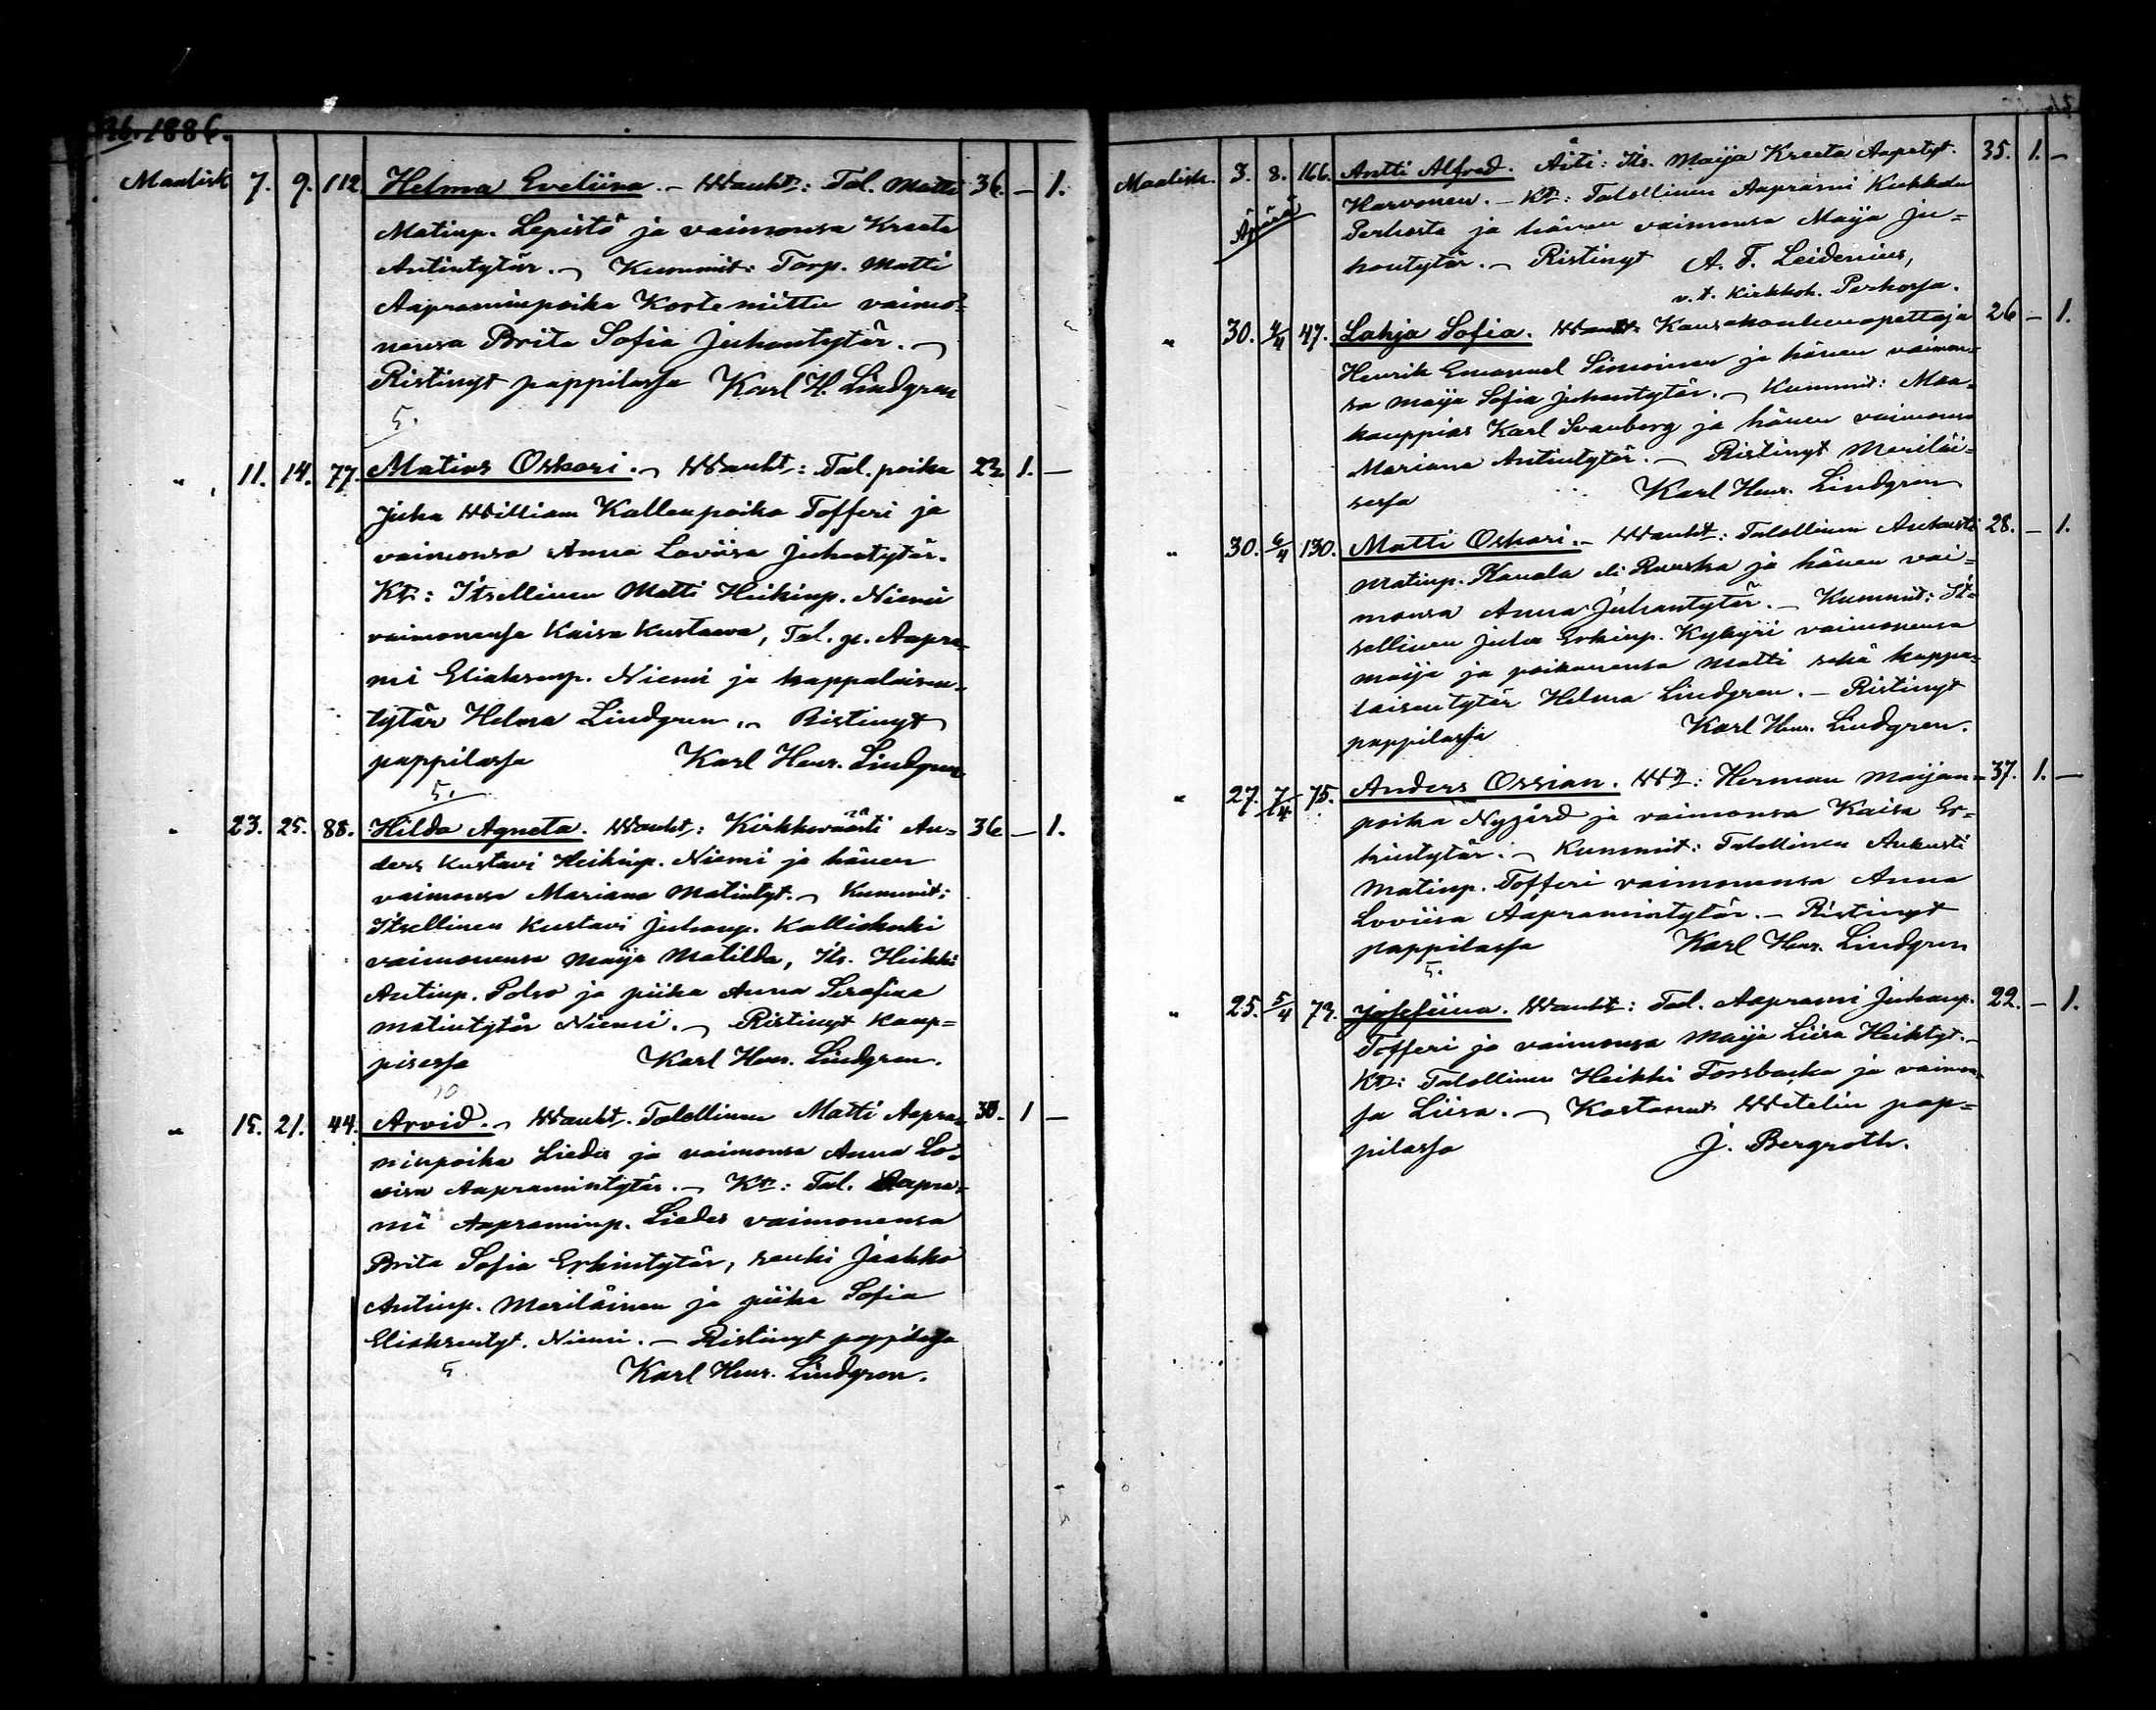 1886.
Maalisk 7. 9. 112 Helma Eveliina. – Wanht: Tal. Matti 36. – 1.
Matinp. Lepistö ja vaimonsa Kreeta
Antintytär. – Kummit: Torp. Matti
Aapraminpoika Korteniittu vaimo-
nensa Brita Sofia Juhontytär. –
Ristinyt pappilassa Karl H. Lindgren
5.
" 11. 14. 77. Matias Oskari. – Wanht: Tal. poika 23. 1. –
Juha William Kallenpoika Tofferi ja
vaimonsa Anna Loviisa Juhontytär.
Kt: Itsellinen Matti Heikinp. Niemi
vaimonensa Kaisa Kustawa, Tal. p. Aapra-
mi Eliaksenp. Niemi ja kappalaisen-
tytär Helma Lindgren. – Ristinyt
pappilassa Karl Henr. Lindgren
5.
" 23. 25. 88. Hilda Agneta. Wanht: Kirkkoväärti An- 36 – 1.
ders Kustavi Heikinp. Niemi ja hänen
vaimonsa Mariana Matintyt. – Kummit:
Itsellinen Kustavi Juhonp. Kalliokoski
vaimonensa Maija Matilda, Its. Heikki
Antinp. Polso ja piika Anna Serafina
Matintytär Niemi. – Ristinyt Kaup-
pisessa Karl Henr. Lindgren.
10
" 15. 21. 44. Arvid. – Wanht. Talollinen Matti Aapra- 30. 1 –
minpoika Liedes ja vaimonsa Anna Lo-
visa Aapramintytär. – Kt: Tal. Aapra-
mi Aapraminp. Liedes vaimonensa
Brita Sofia Erkintytär, renki Jaakko
Antinp. Meriläinen ja piika Sofia
Eliaksentyt. Niemi. – Ristinyt pappilassa
5. Karl Henr. Lindgren.
Maalisk. 3. 8. 166. Antti Alfred. Äiti: Its. Maija Kreeta Aapratyt. 35. 1. –
Äpärä
Harvonen. – Kt: Talollinen Aaprami Kukkola
Perhosta ja hänen vaimonsa Maija Ju-
hontytär. – Ristinyt A. F. Leidenius,
v.t. kirkkoh. Perhossa.
" 30. 4/4 47. Lahja Sofia. Wanht: Kansakoulunopettaja 26 – 1.
Henrik Emanuel Simoinen ja hänen vaimon-
sa Maija Sofia Juhontytär. – Kummit: Maa-
kauppias Karl Svanberg ja hänen vaimonsa
Mariana Antintytär. – Ristinyt Meriläi-
sessa Karl Henr. Lindgren
" 30. 6/4 130. Matti Oskari. – Wanht: Talollinen Aukusti 28. – 1.
Matinp. Kauala eli Ruuska ja hänen vai-
monsa Anna Juhontytär. – Kummit: It-
sellinen Juha Erkinp. Kykyri vaimonensa
Maija ja poikanensa Matti sekä kappa-
laisentytär Helma Lindgren. – Ristinyt
pappilassa Karl Henr. Lindgren.
" 27. 7/4 75. Anders Ossian. Wt: Herman Maijan- 37. 1. –
poika Nygård ja vaimonsa Kaisa Er-
kintytär. – Kummit: Talollinen Aukusti
Matinp. Tofferi vaimonensa Anna
Loviisa Aapramintytär. – Ristinyt
pappilassa Karl Henr. Lindgren
5.
" 25. 5/4 73. Josefiina. Wanht: Tal. Aaprami Juhonp. 22. – 1.
Tofferi ja vaimonsa Maija Liisa Heikityt. –
Kt: Talollinen Heikki Forsbacka ja vaimon-
sa Liisa. – Kastanut Wetelin pap-
pilassa J. Bergroth.